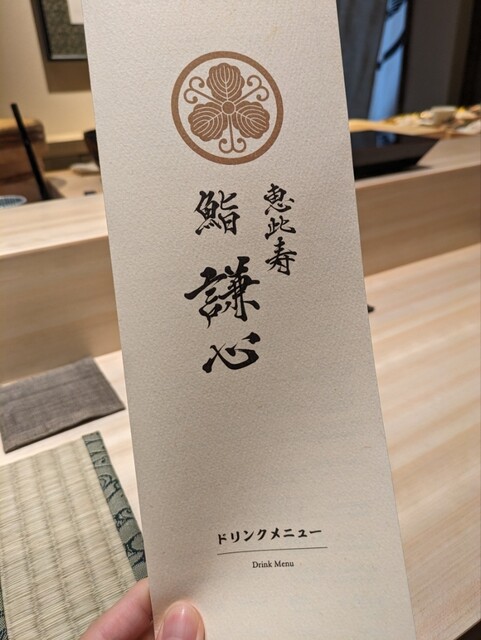 恵比寿
鮨 謙心
ドリンクメニュー
Drink Menu